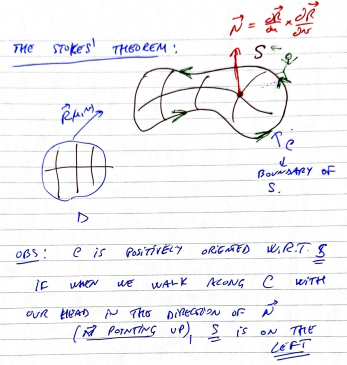 N⃗ = ∂R⃗/∂u × ∂R⃗/∂v
THE STOKES' THEOREM:
S
R⃗(u,v)
C
BOUNDARY OF
S.
D
OBS: C IS POSITIVELY ORIENTED W.R.T. S
IF WHEN WE WALK ALONG C WITH
OUR HEAD IN THE DIRECTION OF N⃗
(N⃗ POINTING UP), S IS ON THE
LEFT